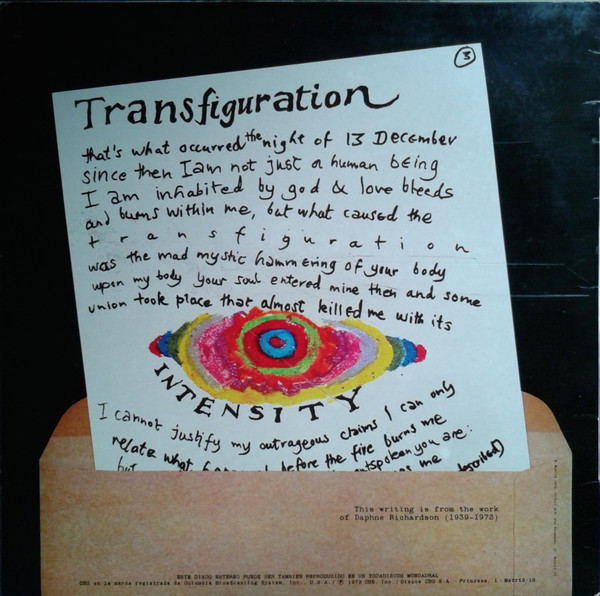 3
Transfiguration
that's what occurred the night of 13 December
since then I am not just a human being
I am inhabited by god & love bleeds
and burns within me, but what caused the
transfiguration
was the mad mystic hammering of your body
upon my body your soul entered mine then and some
union took place that almost killed me with its
INTENSITY
I cannot justify my outrageous claims I can only
relate what before the fire burns me
outspoken you are:
but me described)
This writing is from the work
of Daphne Richardson (1939-1972)
ESTE DISCO ESTEREO PUEDE SER TAMBIEN REPRODUCIDO EN UN TOCADISCOS MONOAURAL
CBS es la marca registrada de Columbia Broadcasting System, Inc., U.S.A./ ℗ 1972 CBS, Inc./ Discos CBS S.A. - Princesa, 1 - Madrid-18